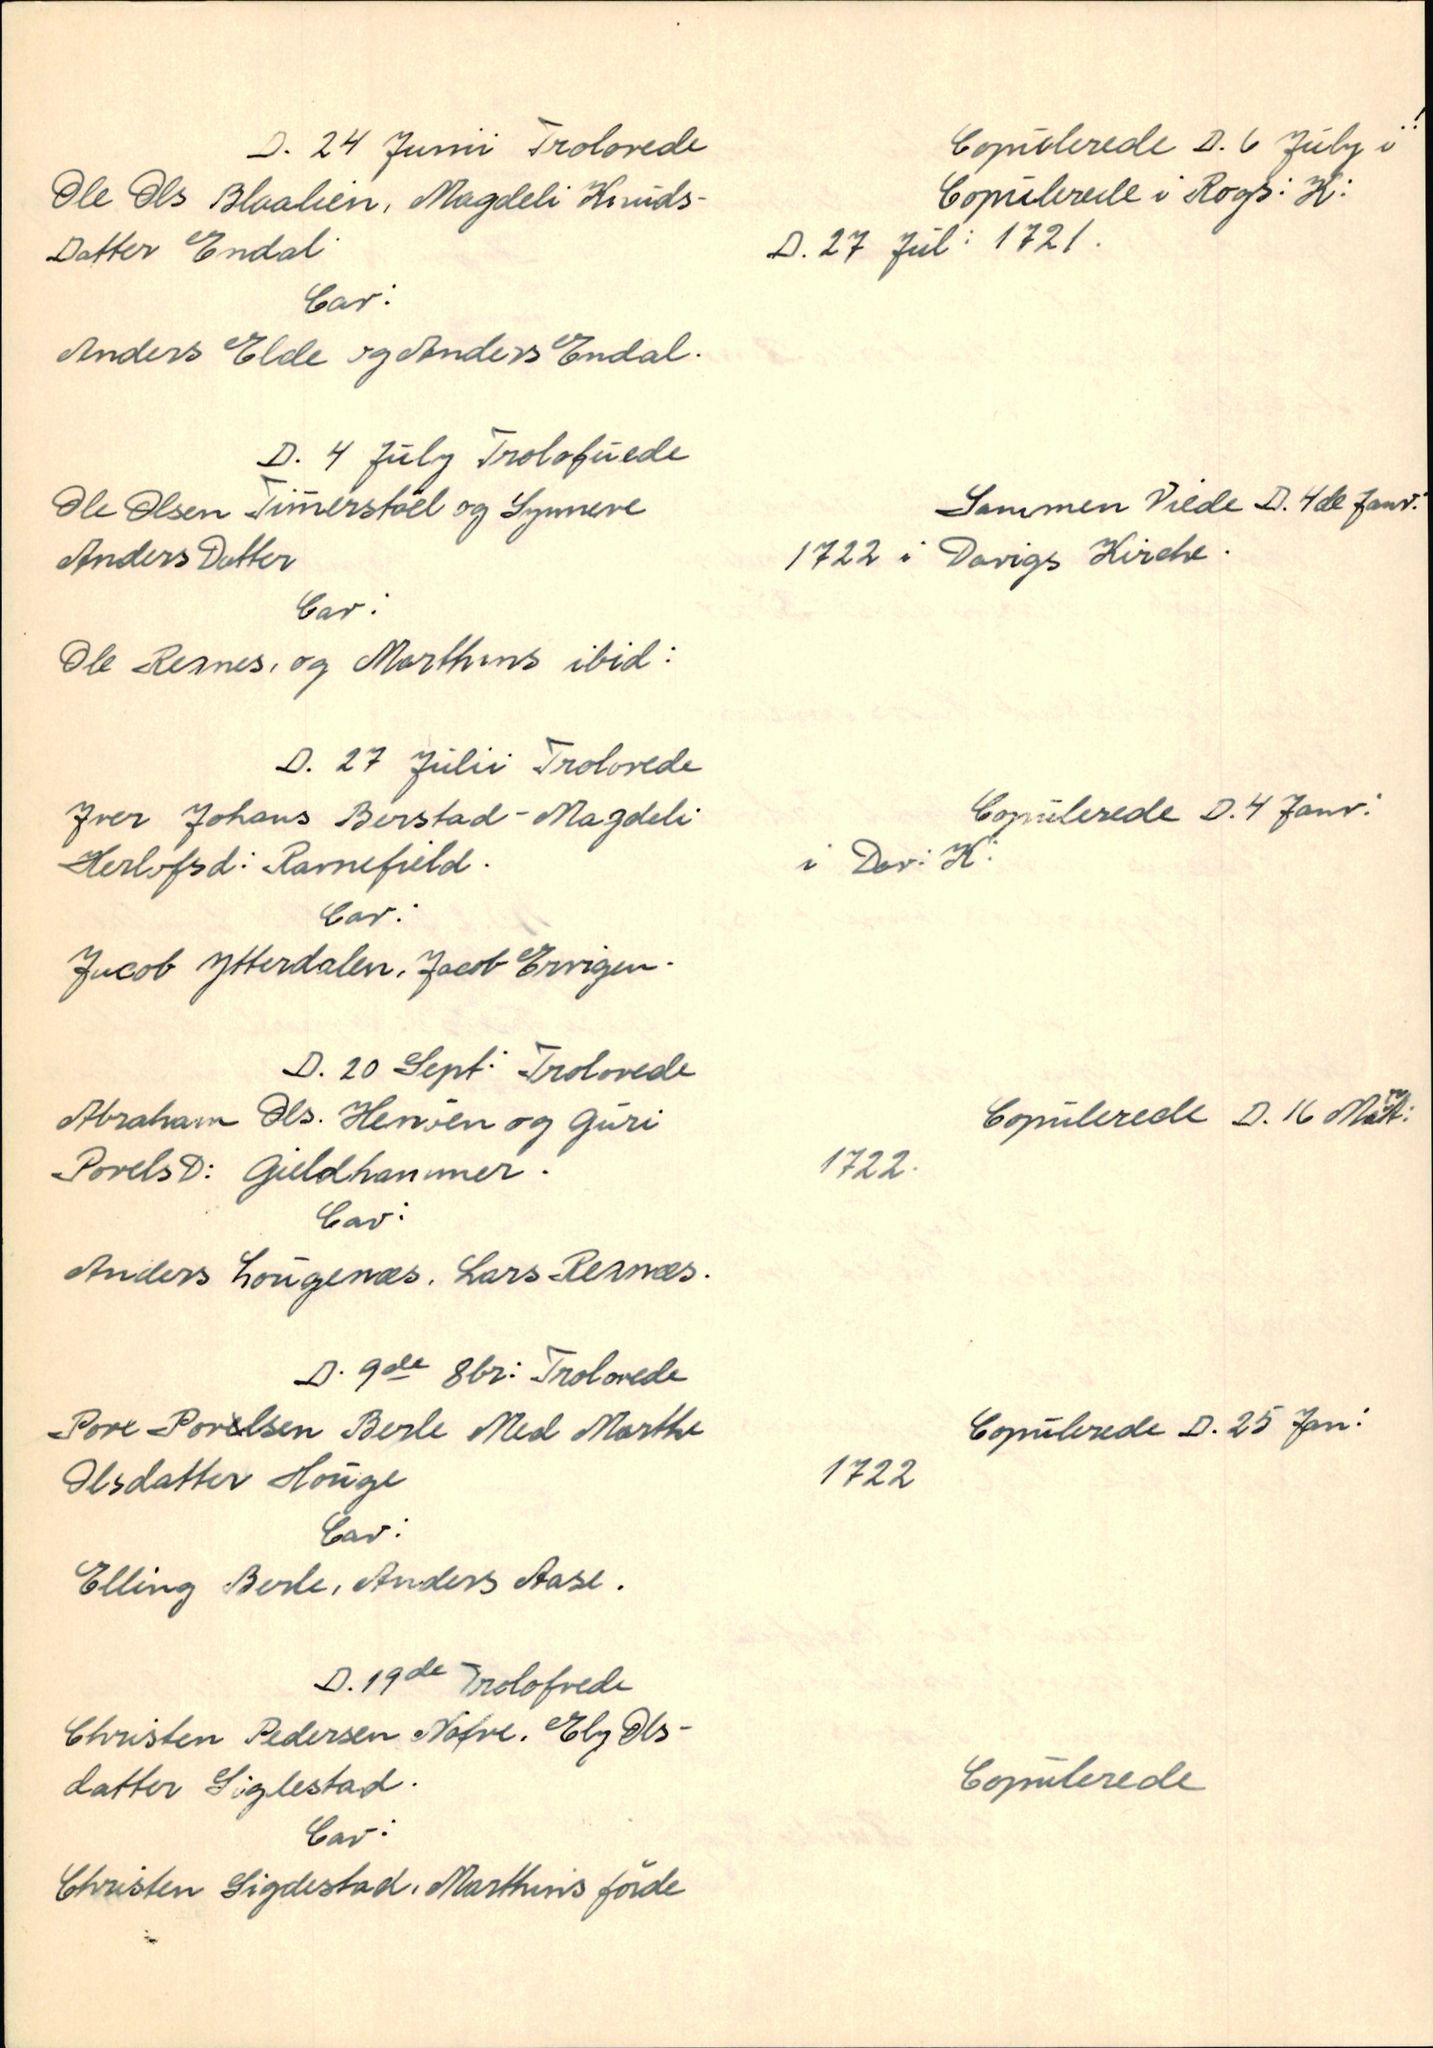 D. 24 Junii Trolovede
Ole Ols Blaalien, Magdeli Knuds-
Datter Endal
Cav:
Anders Elde og Anders Endal.
Copulerede D. 6 July i !
Copulerede i Rogs: K:
D. 27 Jul: 1721.
D. 4 July Trolofuede
Ole Olsen Timerstøel og Synneve
Anders Datter
Cav:
Ole Rexnes, og Marthins ibid:
Sammen Viede D. 4de Janv:
1722 i Davigs Kirche.
D. 27 Julii Trolovede
Iver Johans Berstad - Magdeli
Herlofsd: Ravnefield.
Cav:
Jacob Ytterdalen, Jacob Ervigen.
Copulerede D. 4 Janv:
i Dav: K:
D. 20 Sept: Trolovede
Abraham Ols. Henøen og Guri
Povels D: Gieldhammer.
Cav:
Anders Lougenæs, Lars Rexnæs.
Copulerede D. 16
1722.
D. 9de 8br: Trolovede
Pove Povelsen Berle Med Marthe
Olsdatter Houge
Cav:
Elling Berle, Anders Aase.
Copulerede D. 25 Jan:
1722
D. 19de Trolofvede
Christen Pedersen Nofve, Ely Ols-
datter Siglestad.
Cav:
Christen Sigdestad, Marthins förde
Copulerede